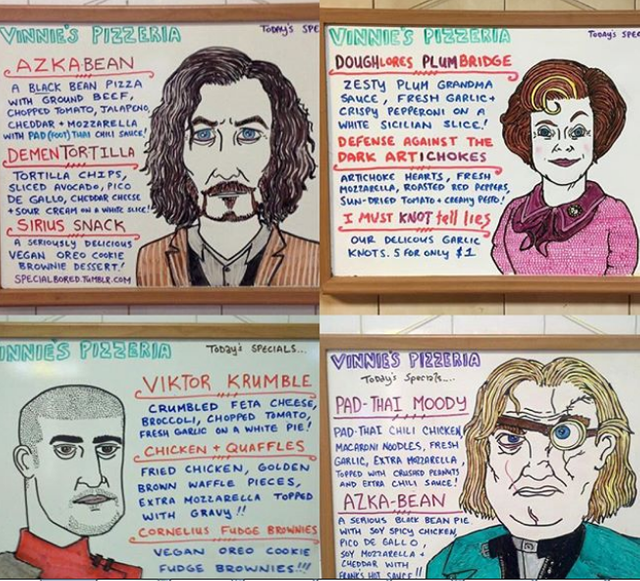 VINNIE'S PIZZERIA
TODAY'S SPE
AZKABEAN
A BLACK BEAN PIZZA
WITH GROUND BEEF,
CHOPPED TOMATO, JALAPENO,
CHEDDAR + MOZZARELLA
WITH PAD(FOOT) THAI CHILI SAUCE!
DEMENTOR-TILLA
TORTILLA CHIPS,
SLICED AVOCADO, PICO
DE GALLO, CHEDDAR CHEESE
+ SOUR CREAM ON A WHITE SLICE!
SIRIUS SNACK
A SERIOUSLY DELICIOUS
VEGAN OREO COOKIE
BROWNIE DESSERT!
SPECIALBORED.TUMBLR.COM
VINNIE'S PIZZERIA
TODAY'S SPEC
DOUGHLORES PLUMBRIDGE
ZESTY PLUM GRANDMA
SAUCE, FRESH GARLIC +
CRISPY PEPPERONI ON A
WHITE SICILIAN SLICE!
DEFENSE AGAINST THE
DARK ARTICHOKES
ARTICHOKE HEARTS, FRESH
MOZZARELLA, ROASTED RED PEPPERS,
SUN-DRIED TOMATO + CREAMY PESTO!
I MUST KNOT tell lies
OUR DELICOUS GARLIC
KNOTS. 5 FOR ONLY $1
INNIE'S PIZZERIA
TODAY'S SPECIALS...
VIKTOR KRUMBLE
CRUMBLED FETA CHEESE,
BROCCOLI, CHOPPED TOMATO,
FRESH GARLIC ON A WHITE PIE!
CHICKEN + QUAFFLES
FRIED CHICKEN, GOLDEN
BROWN WAFFLE PIECES,
EXTRA MOZZARELLA TOPPED
WITH GRAVY!!
CORNELIUS FUDGE BROWNIES
VEGAN OREO COOKIE
FUDGE BROWNIES!!!
VINNIE'S PIZZERIA
TODAY'S SPECIALS....
PAD-THAI MOODY
PAD-THAI CHILI CHICKEN,
MACARONI NOODLES, FRESH
GARLIC, EXTRA MOZZARELLA,
TOPPED WITH CRUSHED PEANUTS
AND EXTRA CHILI SAUCE!
AZKA-BEAN
A SERIOUS BLACK BEAN PIE
WITH SOY SPICY CHICKEN,
PICO DE GALLO,
SOY MOZZARELLA +
CHEDDAR WITH
FRANK'S HOT SAUCE!!